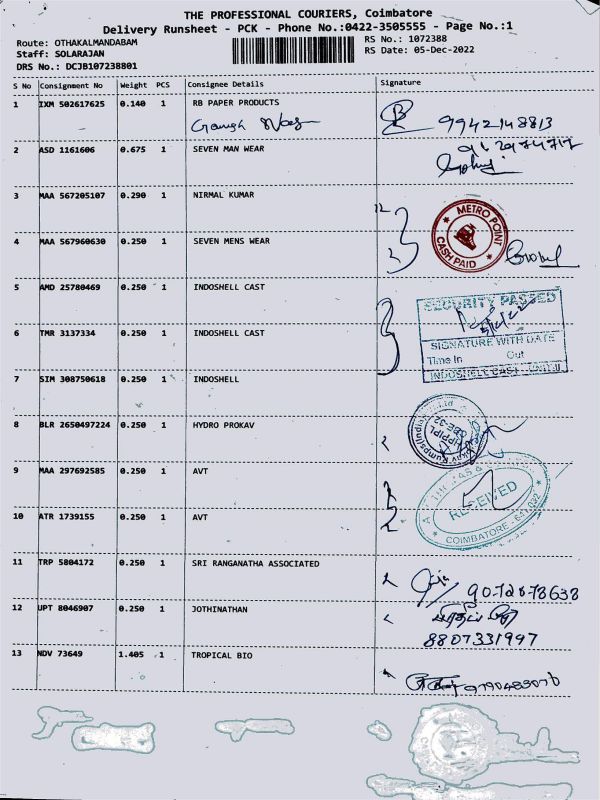 THE PROFESSIONAL COURIERS, Coimbatore
Delivery Runsheet - PCK - Phone No.:0422-3505555 - Page No.:1
Route: OTHAKALMANDABAM
RS No.: 1072388
Staff: SOLARAJAN
RS Date: 05-Dec-2022
DRS No.: DCJB107238801
S No Consignment No Weight PCS Consignee Details Signature
1 IXM 502617625 0.140 1 RB PAPER PRODUCTS
9942148813
2 ASD 1161606 0.675 1 SEVEN MAN WEAR
3 MAA 567205107 0.290 1 NIRMAL KUMAR
METRO POINT
CASH PAID
4 MAA 567960630 0.250 1 SEVEN MENS WEAR
5 AMD 25780469 0.250 1 INDOSHELL CAST
SECURITY PASSED
6 TMR 3137334 0.250 1 INDOSHELL CAST
SIGNATURE WITH DATE
Time In Out
INDOSHELL CAST UNIT-II
7 SIM 308750618 0.250 1 INDOSHELL
8 BLR 2650497224 0.250 1 HYDRO PROKAV
9 MAA 297692585 0.250 1 AVT
RECEIVED
10 ATR 1739155 0.250 1 AVT
COIMBATORE
11 TRP 5804172 0.250 1 SRI RANGANATHA ASSOCIATED
90728-78638
12 UPT 8046907 0.250 1 JOTHINATHAN
8807331997
13 NDV 73649 1.405 1 TROPICAL BIO